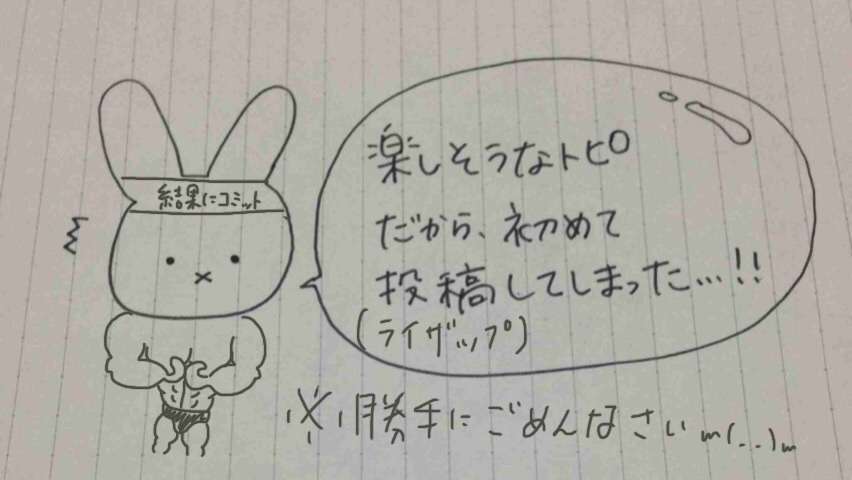 結果にコミット
楽しそうなトピ
だから、初めて
投稿してしまった…!!
(ライザップ)
※勝手にごめんなさいm(..)m